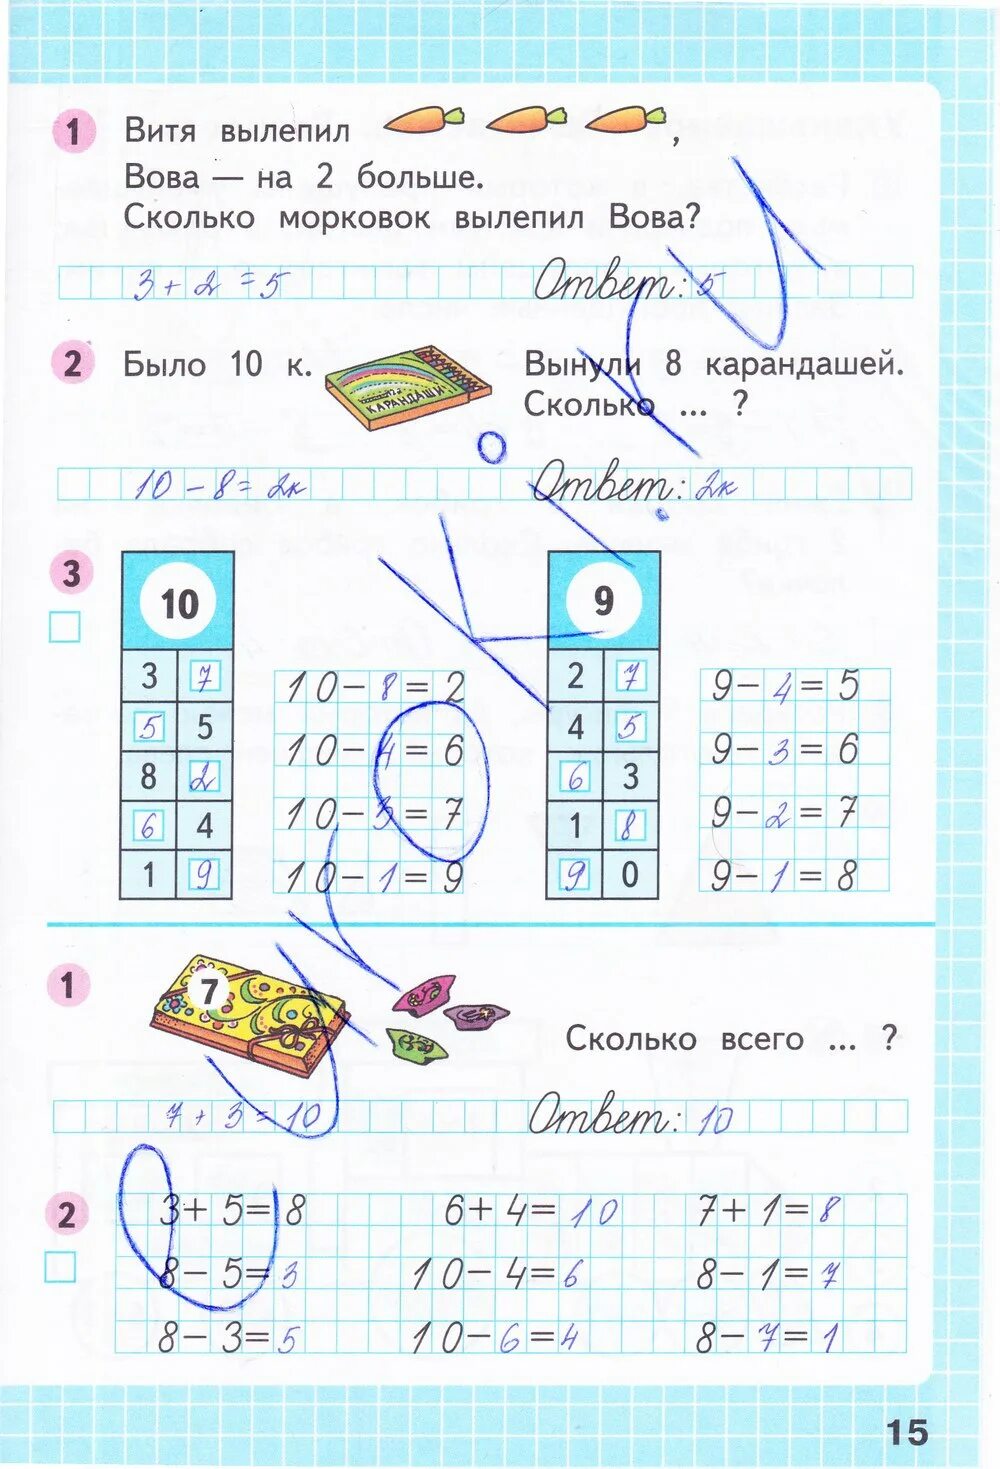 1 Витя вылепил ,
Вова — на 2 больше.
Сколько морковок вылепил Вова?
3 + 2 = 5 Ответ: 5
2 Было 10 к. КАРАНДАШИ Вынули 8 карандашей.
Сколько ... ?
10 - 8 = 2к Ответ: 2к
3
10
3 7
5 5
8 2
6 4
1 9
10 - 8 = 2
10 - 4 = 6
10 - 3 = 7
10 - 1 = 9
9
2 7
4 5
6 3
1 8
9 0
9 - 4 = 5
9 - 3 = 6
9 - 2 = 7
9 - 1 = 8
1 7 Сколько всего ... ?
7 + 3 = 10 Ответ: 10
2 3 + 5 = 8 6 + 4 = 10 7 + 1 = 8
8 - 5 = 3 10 - 4 = 6 8 - 1 = 7
8 - 3 = 5 10 - 6 = 4 8 - 7 = 1
15